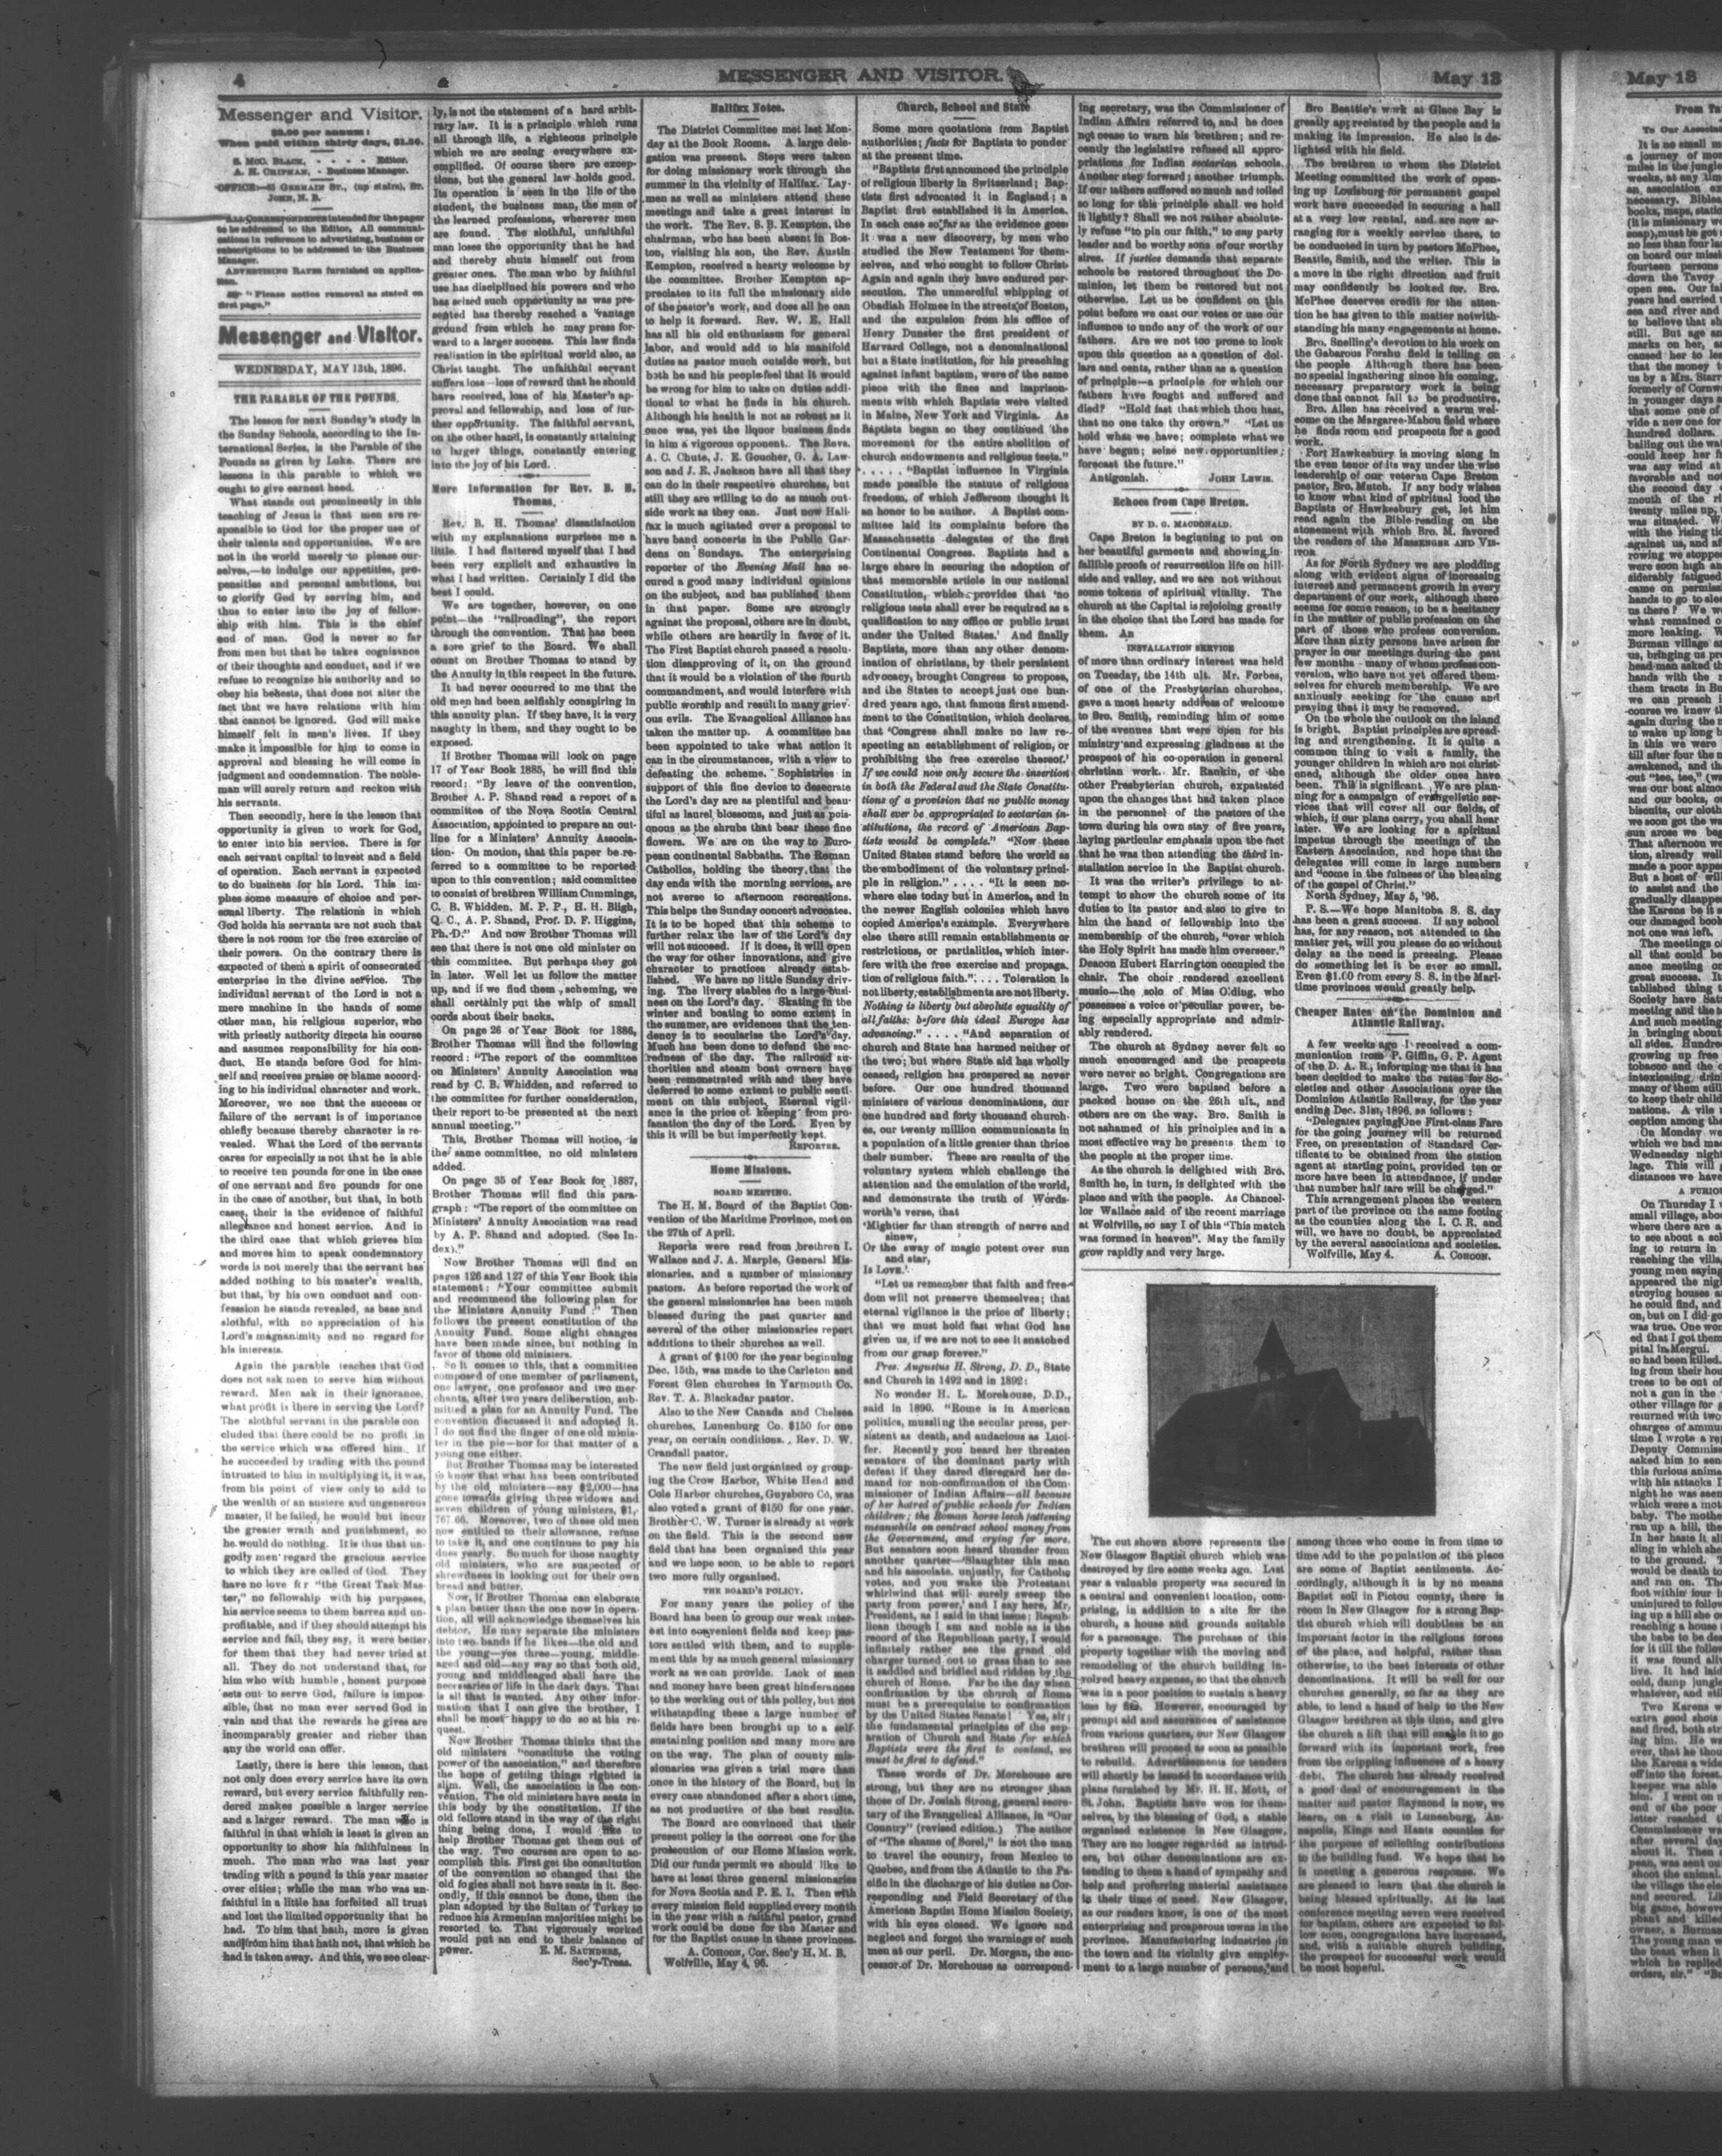 4
MESSENGER AND VISITOR.
May 13
Messenger and Visitor.
$2.00 per annum:
When paid within thirty days, $1.50.
S. McC. BLACK, - - - - Editor.
A. H. CHIPMAN, - Business Manager.
OFFICE:—85 GERMAIN ST., (up stairs), ST.
JOHN, N. B.
ALL CORRESPONDENCE intended for the paper
to be addressed to the Editor. All communi-
cations in reference to advertising, business or
subscriptions to be addressed to the Business
Manager.
ADVERTISING RATES furnished on applica-
tion.
"Please notice removal as stated on
first page."
Messenger and Visitor.
WEDNESDAY, MAY 13th, 1896.
THE PARABLE OF THE POUNDS.
The lesson for next Sunday's study in
the Sunday Schools, according to the In-
ternational Series, is the Parable of the
Pounds as given by Luke. There are
lessons in this parable to which we
ought to give earnest heed.
What stands out prominently in this
teaching of Jesus is that men are re-
sponsible to God for the proper use of
their talents and opportunities. We are
not in the world merely to please our-
selves,—to indulge our appetities, pro-
pensities and personal ambitions, but
to glorify God by serving him, and
thus to enter into the joy of fellow-
ship with him. This is the chief
end of man. God is never so far
from men but that he takes cognizance
of their thoughts and conduct, and if we
refuse to recognize his authority and to
obey his behests, that does not alter the
fact that we have relations with him
that cannot be ignored. God will make
himself felt in men's lives. If they
make it impossible for him to come in
approval and blessing he will come in
judgment and condemnation. The noble-
man will surely return and reckon with
his servants.
Then secondly, here is the lesson that
opportunity is given to work for God,
to enter into his service. There is for
each servant capital to invest and a field
of operation. Each servant is expected
to do business for his Lord. This im-
plies some measure of choice and per-
sonal liberty. The relations in which
God holds his servants are not such that
there is not room for the free exercise of
their powers. On the contrary there is
expected of them a spirit of consecrated
enterprise in the divine service. The
individual servant of the Lord is not a
mere machine in the hands of some
other man, his religious superior, who
with priestly authority directs his course
and assumes responsibility for his con-
duct. He stands before God for him-
self and receives praise or blame accord-
ing to his individual character and work.
Moreover, we see that the success or
failure of the servant is of importance
chiefly because thereby character is re-
vealed. What the Lord of the servants
cares for especially is not that he is able
to receive ten pounds for one in the case
of one servant and five pounds for one
in the case of another, but that, in both
cases, their is the evidence of faithful
allegiance and honest service. And in
the third case that which grieves him
and moves him to speak condemnatory
words is not merely that the servant has
added nothing to his master's wealth,
but that, by his own conduct and con-
fession he stands revealed, as base and
slothful, with no appreciation of his
Lord's magnanimity and no regard for
his interests.
Again the parable teaches that God
does not ask men to serve him without
reward. Men ask in their ignorance,
what profit is there in serving the Lord?
The slothful servant in the parable con
cluded that there could be no profit in
the service which was offered him. If
he succeeded by trading with the pound
intrusted to him in multiplying it, it was,
from his point of view only to add to
the wealth of an austere and ungenerous
master, if he failed, he would but incur
the greater wrath and punishment, so
he would do nothing. It is thus that un-
godly men regard the gracious service
to which they are called of God. They
have no love for "the Great Task-Mas-
ter," no fellowship with his purposes,
his service seems to them barren and un-
profitable, and if they should attempt his
service and fail, they say, it were better
for them that they had never tried at
all. They do not understand that, for
him who with humble, honest purpose
sets out to serve God, failure is impos-
sible, that no man ever served God in
vain and that the rewards he gives are
incomparably greater and richer than
any the world can offer.
Lastly, there is here this lesson, that
not only does every service have its own
reward, but every service faithfully ren-
dered makes possible a larger service
and a larger reward. The man who is
faithful in that which is least is given an
opportunity to show his faithfulness in
much. The man who was last year
trading with a pound is this year master
over cities; while the man who was un-
faithful in a little has forfeited all trust
and lost the limited opportunity that he
had. To him that hath, more is given
and from him that hath not, that which he
had is taken away. And this, we see clear-
ly, is not the statement of a hard arbit-
rary law. It is a principle which runs
all through life, a righteous principle
which we are seeing everywhere ex-
emplified. Of course there are excep-
tions, but the general law holds good.
Its operation is seen in the life of the
student, the business man, the men of
the learned professions, wherever men
are found. The slothful, unfaithful
man loses the opportunity that he had
and thereby shuts himself out from
greater ones. The man who by faithful
use has disciplined his powers and who
has seized such opportunity as was pre-
sented has thereby reached a vantage
ground from which he may press for-
ward to a larger success. This law finds
realization in the spiritual world also, as
Christ taught. The unfaithful servant
suffers loss—loss of reward that he should
have received, loss of his Master's ap-
proval and fellowship, and loss of fur-
ther opportunity. The faithful servant,
on the other hand, is constantly attaining
to larger things, constantly entering
into the joy of his Lord.
More Information for Rev. B. H.
Thomas.
Rev. B. H. Thomas' dissatisfaction
with my explanations surprises me a
little. I had flattered myself that I had
been very explicit and exhaustive in
what I had written. Certainly I did the
best I could.
We are together, however, on one
point—the "railroading", the report
through the convention. That has been
a sore grief to the Board. We shall
count on Brother Thomas to stand by
the Annuity in this respect in the future.
It had never occurred to me that the
old men had been selfishly conspiring in
this annuity plan. If they have, it is very
naughty in them, and they ought to be
exposed.
If Brother Thomas will look on page
17 of Year Book 1885, he will find this
record: "By leave of the convention,
Brother A. P. Shand read a report of a
committee of the Nova Scotia Central
Association, appointed to prepare an out-
line for a Ministers' Annuity Associa-
tion. On motion, that this paper be re-
ferred to a committee to be reported
upon to this convention; said committee
to consist of brethren William Cummings,
C. B. Whidden, M. P. P., H. H. Bligh,
Q. C., A. P. Shand, Prof. D. F. Higgins,
Ph. D." And now Brother Thomas will
see that there is not one old minister on
this committee. But perhaps they got
in later. Well let us follow the matter
up, and if we find them scheming, we
shall certainly put the whip of small
cords about their backs.
On page 26 of Year Book for 1886,
Brother Thomas will find the following
record: "The report of the committee
on Ministers' Annuity Association was
read by C. B. Whidden, and referred to
the committee for further consideration,
their report to be presented at the next
annual meeting."
This, Brother Thomas will notice, is
the same committee, no old ministers
added.
On page 35 of Year Book for 1887,
Brother Thomas will find this para-
graph: "The report of the committee on
Ministers' Annuity Association was read
by A. P. Shand and adopted. (See In-
dex)."
Now Brother Thomas will find on
pages 126 and 127 of this Year Book this
statement: "Your committee submit
and recommend the following plan for
the Ministers Annuity Fund:" Then
follows the present constitution of the
Annuity Fund. Some slight changes
have been made since, but nothing in
favor of those old ministers.
So it comes to this, that a committee
composed of one member of parliament,
one lawyer, one professor and two mer-
chants, after two years deliberation, sub-
mitted a plan for an Annuity Fund. The
convention discussed it and adopted it.
I do not find the finger of one old minis-
ter in the pie—nor for that matter of a
young one either.
But Brother Thomas may be interested
to know that what has been contributed
by the old ministers—say $2,000—has
gone towards giving three widows and
seven children of young ministers, $1,-
767.66. Moreover, two of these old men
now entitled to their allowance, refuse
to take it, and one continues to pay his
dues yearly. So much for those naughty
old ministers, who are suspected of
shrewdness in looking out for their own
bread and butter.
Now, if Brother Thomas can elaborate
a plan better than the one now in opera-
tion, all will acknowledge themselves his
debtor. He may separate the ministers
into two bands if he likes—the old and
the young—yes three—young, middle-
aged and old—any way so that both old,
young and middleaged shall have the
necessaries of life in the dark days. That
is all that is wanted. Any other infor-
mation that I can give the brother, I
shall be most happy to do so at his re-
quest.
Now Brother Thomas thinks that the
old ministers "constitute the voting
power of the association," and therefore
the hope of getting things righted is
slim. Well, the association is the con-
vention. The old ministers have seats in
this body by the constitution. If the
old fellows stand in the way of the right
thing being done, I would like to
help Brother Thomas get them out of
the way. Two courses are open to ac-
complish this. First get the constitution
of the convention so changed that the
old fogies shall not have seats in it. Sec-
ondly, if this cannot be done, then the
plan adopted by the Sultan of Turkey to
reduce his Armenian majorities might be
resorted to. That vigorously worked
would put an end to their balance of
power. E. M. SAUNDERS,
Sec'y-Treas.
Halifax Notes.
The District Committee met last Mon-
day at the Book Rooms. A large dele-
gation was present. Steps were taken
for doing missionary work through the
summer in the vicinity of Halifax. Lay-
men as well as ministers attend these
meetings and take a great interest in
the work. The Rev. S. B. Kempton, the
chairman, who has been absent in Bos-
ton, visiting his son, the Rev. Austin
Kempton, received a hearty welcome by
the committee. Brother Kempton ap-
preciates to its full the missionary side
of the pastor's work, and does all he can
to help it forward. Rev. W. E. Hall
has all his old enthusiasm for general
labor, and would add to his manifold
duties as pastor much outside work, but
both he and his people feel that it would
be wrong for him to take on duties addi-
tional to what he finds in his church.
Although his health is not as robust as it
once was, yet the liquor business finds
in him a vigorous opponent. The Revs.
A. C. Chute, J. E. Goucher, G. A. Law-
son and J. E. Jackson have all that they
can do in their respective churches, but
still they are willing to do as much out-
side work as they can. Just now Hali-
fax is much agitated over a proposal to
have band concerts in the Public Gar-
dens on Sundays. The enterprising
reporter of the Evening Mail has se-
cured a good many individual opinions
on the subject, and has published them
in that paper. Some are strongly
against the proposal, others are in doubt,
while others are heartily in favor of it.
The First Baptist church passed a resolu-
tion disapproving of it, on the ground
that it would be a violation of the fourth
commandment, and would interfere with
public worship and result in many griev-
ous evils. The Evangelical Alliance has
taken the matter up. A committee has
been appointed to take what action it
can in the circumstances, with a view to
defeating the scheme. Sophistries in
support of this fine device to desecrate
the Lord's day are as plentiful and beau-
tiful as laurel blossoms, and just as pois-
onous as the shrubs that bear these fine
flowers. We are on the way to Euro-
pean continental Sabbaths. The Roman
Catholics, holding the theory, that the
day ends with the morning services, are
not averse to afternoon recreations.
This helps the Sunday concert advocates.
It is to be hoped that this scheme to
further relax the law of the Lord's day
will not succeed. If it does, it will open
the way for other innovations, and give
character to practices already estab-
lished. We have no little Sunday driv-
ing. The livery stables do a large busi-
ness on the Lord's day. Skating in the
winter and boating to some extent in
the summer, are evidences that the ten-
dency is to secularise the Lord's day.
Much has been done to defend the sac-
redness of the day. The railroad au-
thorities and steam boat owners have
been remonstrated with and they have
deferred to some extent to public senti-
ment on this subject. Eternal vigil-
ance is the price of keeping from pro-
fanation the day of the Lord. Even by
this it will be but imperfectly kept.
REPORTER.
Home Missions.
BOARD MEETING.
The H. M. Board of the Baptist Con-
vention of the Maritime Province, met on
the 27th of April.
Reports were read from brethren I.
Wallace and J. A. Marple, General Mis-
sionaries, and a number of missionary
pastors. As before reported the work of
the general missionaries has been much
blessed during the past quarter and
several of the other missionaries report
additions to their churches as well.
A grant of $100 for the year beginning
Dec. 15th, was made to the Carleton and
Forest Glen churches in Yarmouth Co.
Rev. T. A. Blackadar pastor.
Also to the New Canada and Chelsea
churches, Lunenburg Co. $150 for one
year, on certain conditions. Rev. D. W.
Crandall pastor.
The new field just organized by group-
ing the Crow Harbor, White Head and
Cole Harbor churches, Guysboro Co, was
also voted a grant of $150 for one year.
Brother C. W. Turner is already at work
on the field. This is the second new
field that has been organised this year
and we hope soon to be able to report
two more fully organised.
THE BOARD'S POLICY.
For many years the policy of the
Board has been to group our weak inter-
est into convenient fields and keep pas-
tors settled with them, and to supple-
ment this by as much general missionary
work as we can provide. Lack of men
and money have been great hinderances
to the working out of this policy, but not
withstanding these a large number of
fields have been brought up to a self-
sustaining position and many more are
on the way. The plan of county mis-
sionaries was given a trial more than
once in the history of the Board, but in
every case abandoned after a short time,
as not productive of the best results.
The Board are convinced that their
present policy is the correct one for the
prosecution of our Home Mission work.
Did our funds permit we should like to
have at least three general missionaries
for Nova Scotia and P. E. I. Then with
every mission field supplied every month
in the year with a faithful pastor, grand
work could be done for the Master and
for the Baptist cause in these provinces.
A. COHOON, Cor. Sec'y H. M. B.
Wolfville, May 4, 96.
Church, School and State
Some more quotations from Baptist
authorities; facts for Baptists to ponder
at the present time.
"Baptists first announced the principle
of religious liberty in Switzerland; Bap-
tists first advocated it in England; a
Baptist first established it in America.
In each case so far as the evidence goes
it was a new discovery, by men who
studied the New Testament for them-
selves, and who sought to follow Christ.
Again and again they have endured per-
secution. The unmerciful whipping of
Obadiah Holmes in the streets of Boston,
and the expulsion from his office of
Henry Dunster the first president of
Harvard College, not a denominational
but a State institution, for his preaching
against infant baptism, were of the same
piece with the fines and imprison-
ments with which Baptists were visited
in Maine, New York and Virginia. As
Baptists began so they continued the
movement for the entire abolition of
church endowments and religious tests."
. . . . . "Baptist influence in Virginia
made possible the statute of religious
freedom, of which Jefferson thought it
an honor to be author. A Baptist com-
mittee laid its complaints before the
Massachusetts delegates of the first
Continental Congress. Baptists had a
large share in securing the adoption of
that memorable article in our national
Constitution, which provides that 'no
religious tests shall ever be required as a
qualification to any office or public trust
under the United States.' And finally
Baptists, more than any other denom-
ination of christians, by their persistent
advocacy, brought Congress to propose,
and the States to accept just one hun-
dred years ago, that famous first amend-
ment to the Constitution, which declares
that 'Congress shall make no law re-
specting an establishment of religion, or
prohibiting the free exercise thereof.'
If we could now only secure the insertion
in both the Federal and the State Constitu-
tions of a provision that no public money
shall ever be appropriated to sectarian in-
stitutions, the record of American Bap-
tists would be complete." "Now these
United States stand before the world as
the embodiment of the voluntary princi-
ple in religion." . . . . "It is seen no-
where else today but in America, and in
the newer English colonies which have
copied America's example. Everywhere
else there still remain establishments or
restrictions, or partialities, which inter-
fere with the free exercise and propaga-
tion of religious faith." . . . . Toleration is
not liberty, establishments are not liberty.
Nothing is liberty but absolute equality of
all faiths: before this ideal Europe has
advancing." . . . . "And separation of
church and State has harmed neither of
the two; but where State aid has wholly
ceased, religion has prospered as never
before. Our one hundred thousand
ministers of various denominations, our
one hundred and forty thousand church-
es, our twenty million communicants in
a population of a little greater than thrice
their number. These are results of the
voluntary system which challenge the
attention and the emulation of the world,
and demonstrate the truth of Words-
worth's verse, that
'Mightier far than strength of nerve and
sinew,
Or the sway of magic potent over sun
and star,
Is LOVE.'
"Let us remember that faith and free-
dom will not preserve themselves; that
eternal vigilance is the price of liberty;
that we must hold fast what God has
given us, if we are not to see it snatched
from our grasp forever."
Pres. Augustus H. Strong, D. D., State
and Church in 1492 and in 1892:
No wonder H. L. Morehouse, D.D.,
said in 1890. "Rome is in American
politics, muzzling the secular press, per-
sistent as death, and audacious as Luci-
fer. Recently you heard her threaten
senators of the dominant party with
defeat if they dared disregard her de-
mand for non-confirmation of the Com-
missioner of Indian Affairs—all because
of her hatred of public schools for Indian
children; the Roman horse leech fattening
meanwhile on contract school money from
the Government, and crying for more.
But senators soon heard thunder from
another quarter—'Slaughter this man
and his associate, unjustly, for Catholic
votes, and you wake the Protestant
whirlwind that will surely sweep the
party from power,' and I say here, Mr.
President, as I said in that issue; Repub-
lican though I am and noble as is the
record of the Republican party, I would
infinitely rather see the grand old
charger turned out to grass than to see
it saddled and bridled and ridden by the
church of Rome. Far be the day when
confirmation by the church of Rome
must be a prerequisite to confirmation
by the United States Senate! Yes, sir;
the fundamental principles of the sep-
aration of Church and State for which
Baptists were the first to contend, we
must be first to defend."
These words of Dr. Morehouse are
strong, but they are no stronger than
those of Dr. Josiah Strong, general secre-
tary of the Evangelical Alliance, in "Our
Country" (revised edition.) The author
of "The shame of Sorel," is not the man
to travel the country, from Mexico to
Quebec, and from the Atlantic to the Pa-
cific in the discharge of his duties as Cor-
responding and Field Secretary of the
American Baptist Home Mission Society,
with his eyes closed. We ignore and
neglect and forget the warnings of such
men at our peril. Dr. Morgan, the suc-
cessor of Dr. Morehouse as correspond-
ing secretary, was the Commissioner of
Indian Affairs referred to, and he does
not cease to warn his brethren; and re-
cently the legislative refused all appro-
priations for Indian sectarian schools.
Another step forward; another triumph.
If our fathers suffered so much and toiled
so long for this principle shall we hold
it lightly? Shall we not rather absolute-
ly refuse "to pin our faith," to any party
leader and be worthy sons of our worthy
sires. If justice demands that separate
schools be restored throughout the Do-
minion, let them be restored but not
otherwise. Let us be confident on this
point before we cast our votes or use our
influence to undo any of the work of our
fathers. Are we not too prone to look
upon this question as a question of dol-
lars and cents, rather than as a question
of principle—a principle for which our
fathers have fought and suffered and
died? "Hold fast that which thou hast,
that no one take thy crown." "Let us
hold what we have; complete what we
have begun; seize new opportunities;
forecast the future."
Antigonish. JOHN LEWIS.
Echoes from Cape Breton.
BY D. G. MACDONALD.
Cape Breton is beginning to put on
her beautiful garments and showing in-
fallible proofs of resurrection life on hill-
side and valley, and we are not without
some tokens of spiritual vitality. The
church at the Capital is rejoicing greatly
in the choice that the Lord has made for
them. An
INSTALLATION SERVICE
of more than ordinary interest was held
on Tuesday, the 14th ult. Mr. Forbes,
of one of the Presbyterian churches,
gave a most hearty address of welcome
to Bro. Smith, reminding him of some
of the avenues that were open for his
ministry and expressing gladness at the
prospect of his co-operation in general
christian work. Mr. Rankin, of the
other Presbyterian church, expatiated
upon the changes that had taken place
in the personnel of the pastors of the
town during his own stay of five years,
laying particular emphasis upon the fact
that he was then attending the third in-
stallation service in the Baptist church.
It was the writer's privilege to at-
tempt to show the church some of its
duties to its pastor and also to give to
him the hand of fellowship into the
membership of the church, "over which
the Holy Spirit has made him overseer."
Deacon Hubert Harrington occupied the
chair. The choir rendered excellent
music—the solo of Miss Olding, who
possesses a voice of peculiar power, be-
ing especially appropriate and admir-
ably rendered.
The church at Sydney never felt so
much encouraged and the prospects
were never so bright. Congregations are
large. Two were baptised before a
packed house on the 26th ult., and
others are on the way. Bro. Smith is
not ashamed of his principles and in a
most effective way he presents them to
the people at the proper time.
As the church is delighted with Bro.
Smith he, in turn, is delighted with the
place and with the people. As Chancel-
lor Wallace said of the recent marriage
at Wolfville, so say I of this "This match
was formed in heaven". May the family
grow rapidly and very large.
Bro Beattie's work at Glace Bay is
greatly appreciated by the people and is
making its impression. He also is de-
lighted with his field.
The brethren to whom the District
Meeting committed the work of open-
ing up Louisburg for permanent gospel
work have succeeded in securing a hall
at a very low rental, and are now ar-
ranging for a weekly service there, to
be conducted in turn by pastors McPhee,
Beattie, Smith, and the writer. This is
a move in the right direction and fruit
may confidently be looked for. Bro.
McPhee deserves credit for the atten-
tion he has given to this matter notwith-
standing his many engagements at home.
Bro. Snelling's devotion to his work on
the Gabarous Forshu field is telling on
the people. Although there has been
no special ingathering since his coming,
necessary preparatory work is being
done that cannot fail to be productive.
Bro. Allen has received a warm wel-
come on the Margaree-Mabou field where
he finds room and prospects for a good
work.
Port Hawkesbury is moving along in
the even tenor of its way under the wise
leadership of our veteran Cape Breton
pastor, Bro. Mutch. If any body wishes
to know what kind of spiritual food the
Baptists of Hawkesbury get, let him
read again the Bible reading on the
atonement with which Bro. M. favored
the readers of the MESSENGER AND VIS-
ITOR.
As for North Sydney we are plodding
along with evident signs of increasing
interest and permanent growth in every
department of our work, although there
seems for some reason, to be a hesitancy
in the matter of public profession on the
part of those who profess conversion.
More than sixty persons have arisen for
prayer in our meetings during the past
few months—many of whom profess con-
version, who have not yet offered them-
selves for church membership. We are
anxiously seeking for the cause and
praying that it may be removed.
On the whole the outlook on the island
is bright. Baptist principles are spread-
ing and strengthening. It is quite a
common thing to visit a family, the
younger children in which are not christ-
ened, although the older ones have
been. This is significant. We are plan-
ning for a campaign of evangelistic ser-
vices that will cover all our fields, of
which, if our plans carry, you shall hear
later. We are looking for a spiritual
impetus through the meetings of the
Eastern Association, and hope that the
delegates will come in large numbers
and "come in the fulness of the blessing
of the gospel of Christ."
North Sydney, May 5, '96.
P. S.—We hope Manitoba S. S. day
has been a great success. If any school
has, for any reason, not attended to the
matter yet, will you please do so without
delay as the need is pressing. Please
do something let it be ever so small.
Even $1.00 from every S. S. in the Mari-
time provinces would greatly help.
Cheaper Rates on the Dominion and
Atlantic Railway.
A few weeks ago I received a com-
munication from P. Giffin, G. P. Agent
of the D. A. R., informing me that it has
been decided to make the rates for So-
cieties and other Associations over the
Dominion Atlantic Railway, for the year
ending Dec. 31st, 1896, as follows:
"Delegates paying One First-class Fare
for the going journey will be returned
Free, on presentation of Standard Cer-
tificate to be obtained from the station
agent at starting point, provided ten or
more have been in attendance, if under
that number half fare will be charged."
This arrangement places the western
part of the province on the same footing
as the counties along the I. C. R. and
will, we have no doubt, be appreciated
by the several associations and societies.
Wolfville, May 4. A. COHOON.
The cut shown above represents the
New Glasgow Baptist church which was
destroyed by fire some weeks ago. Last
year a valuable property was secured in
a central and convenient location, com-
prising, in addition to a site for the
church, a house and grounds suitable
for a parsonage. The purchase of this
property together with the moving and
remodeling of the church building in-
volved heavy expense, so that the church
was in a poor position to sustain a heavy
loss by fire. However, encouraged by
prompt aid and assurances of assistance
from various quarters, our New Glasgow
brethren will proceed as soon as possible
to rebuild. Advertisements for tenders
will shortly be issued in accordance with
plans furnished by Mr. H. H. Mott, of
St. John. Baptists have won for them-
selves, by the blessing of God, a stable
organised existence in New Glasgow.
They are no longer regarded as intrud-
ers, but other denominations are ex-
tending to them a hand of sympathy and
help and proferring material assistance
in their time of need. New Glasgow,
as our readers know, is one of the most
enterprising and prosperous towns in the
province. Manufacturing industries in
the town and its vicinity give employ-
ment to a large number of persons, and
among those who come in from time to
time add to the population of the place
are some of Baptist sentiments. Ac-
cordingly, although it is by no means
Baptist soil in Pictou county, there is
room in New Glasgow for a strong Bap-
tist church which will doubtless be an
important factor in the religious forces
of the place, and helpful, rather than
otherwise, to the best interests of other
denominations. It will be well for our
churches generally, so far as they are
able, to lend a hand of help to the New
Glasgow brethren at this time, and give
the church a lift that will enable it to go
forward with its important work, free
from the crippling influences of a heavy
debt. The church has already received
a good deal of encouragement in the
matter and pastor Raymond is now, we
learn, on a visit to Lunenburg, An-
napolis, Kings and Hants counties for
the purpose of soliciting contributions
to the building fund. We hope that he
is meeting a generous response. We
are pleased to learn that the church is
being blessed spiritually. At its last
conference meeting seven were received
for baptism, others are expected to fol-
low soon, congregations have increased,
and, with a suitable church building,
the prospect for successful work would
be most hopeful.
May 13